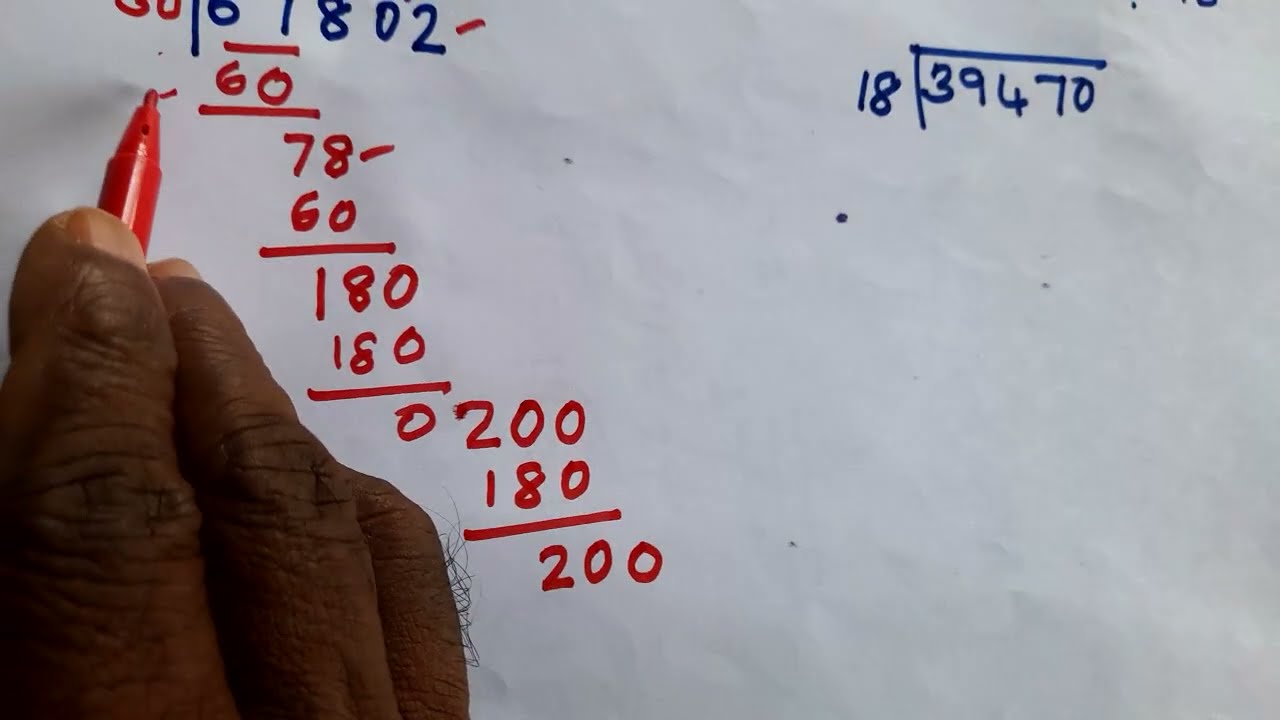 67802 -
60
78 -
60
180
180
0 200
180
200
18 39470